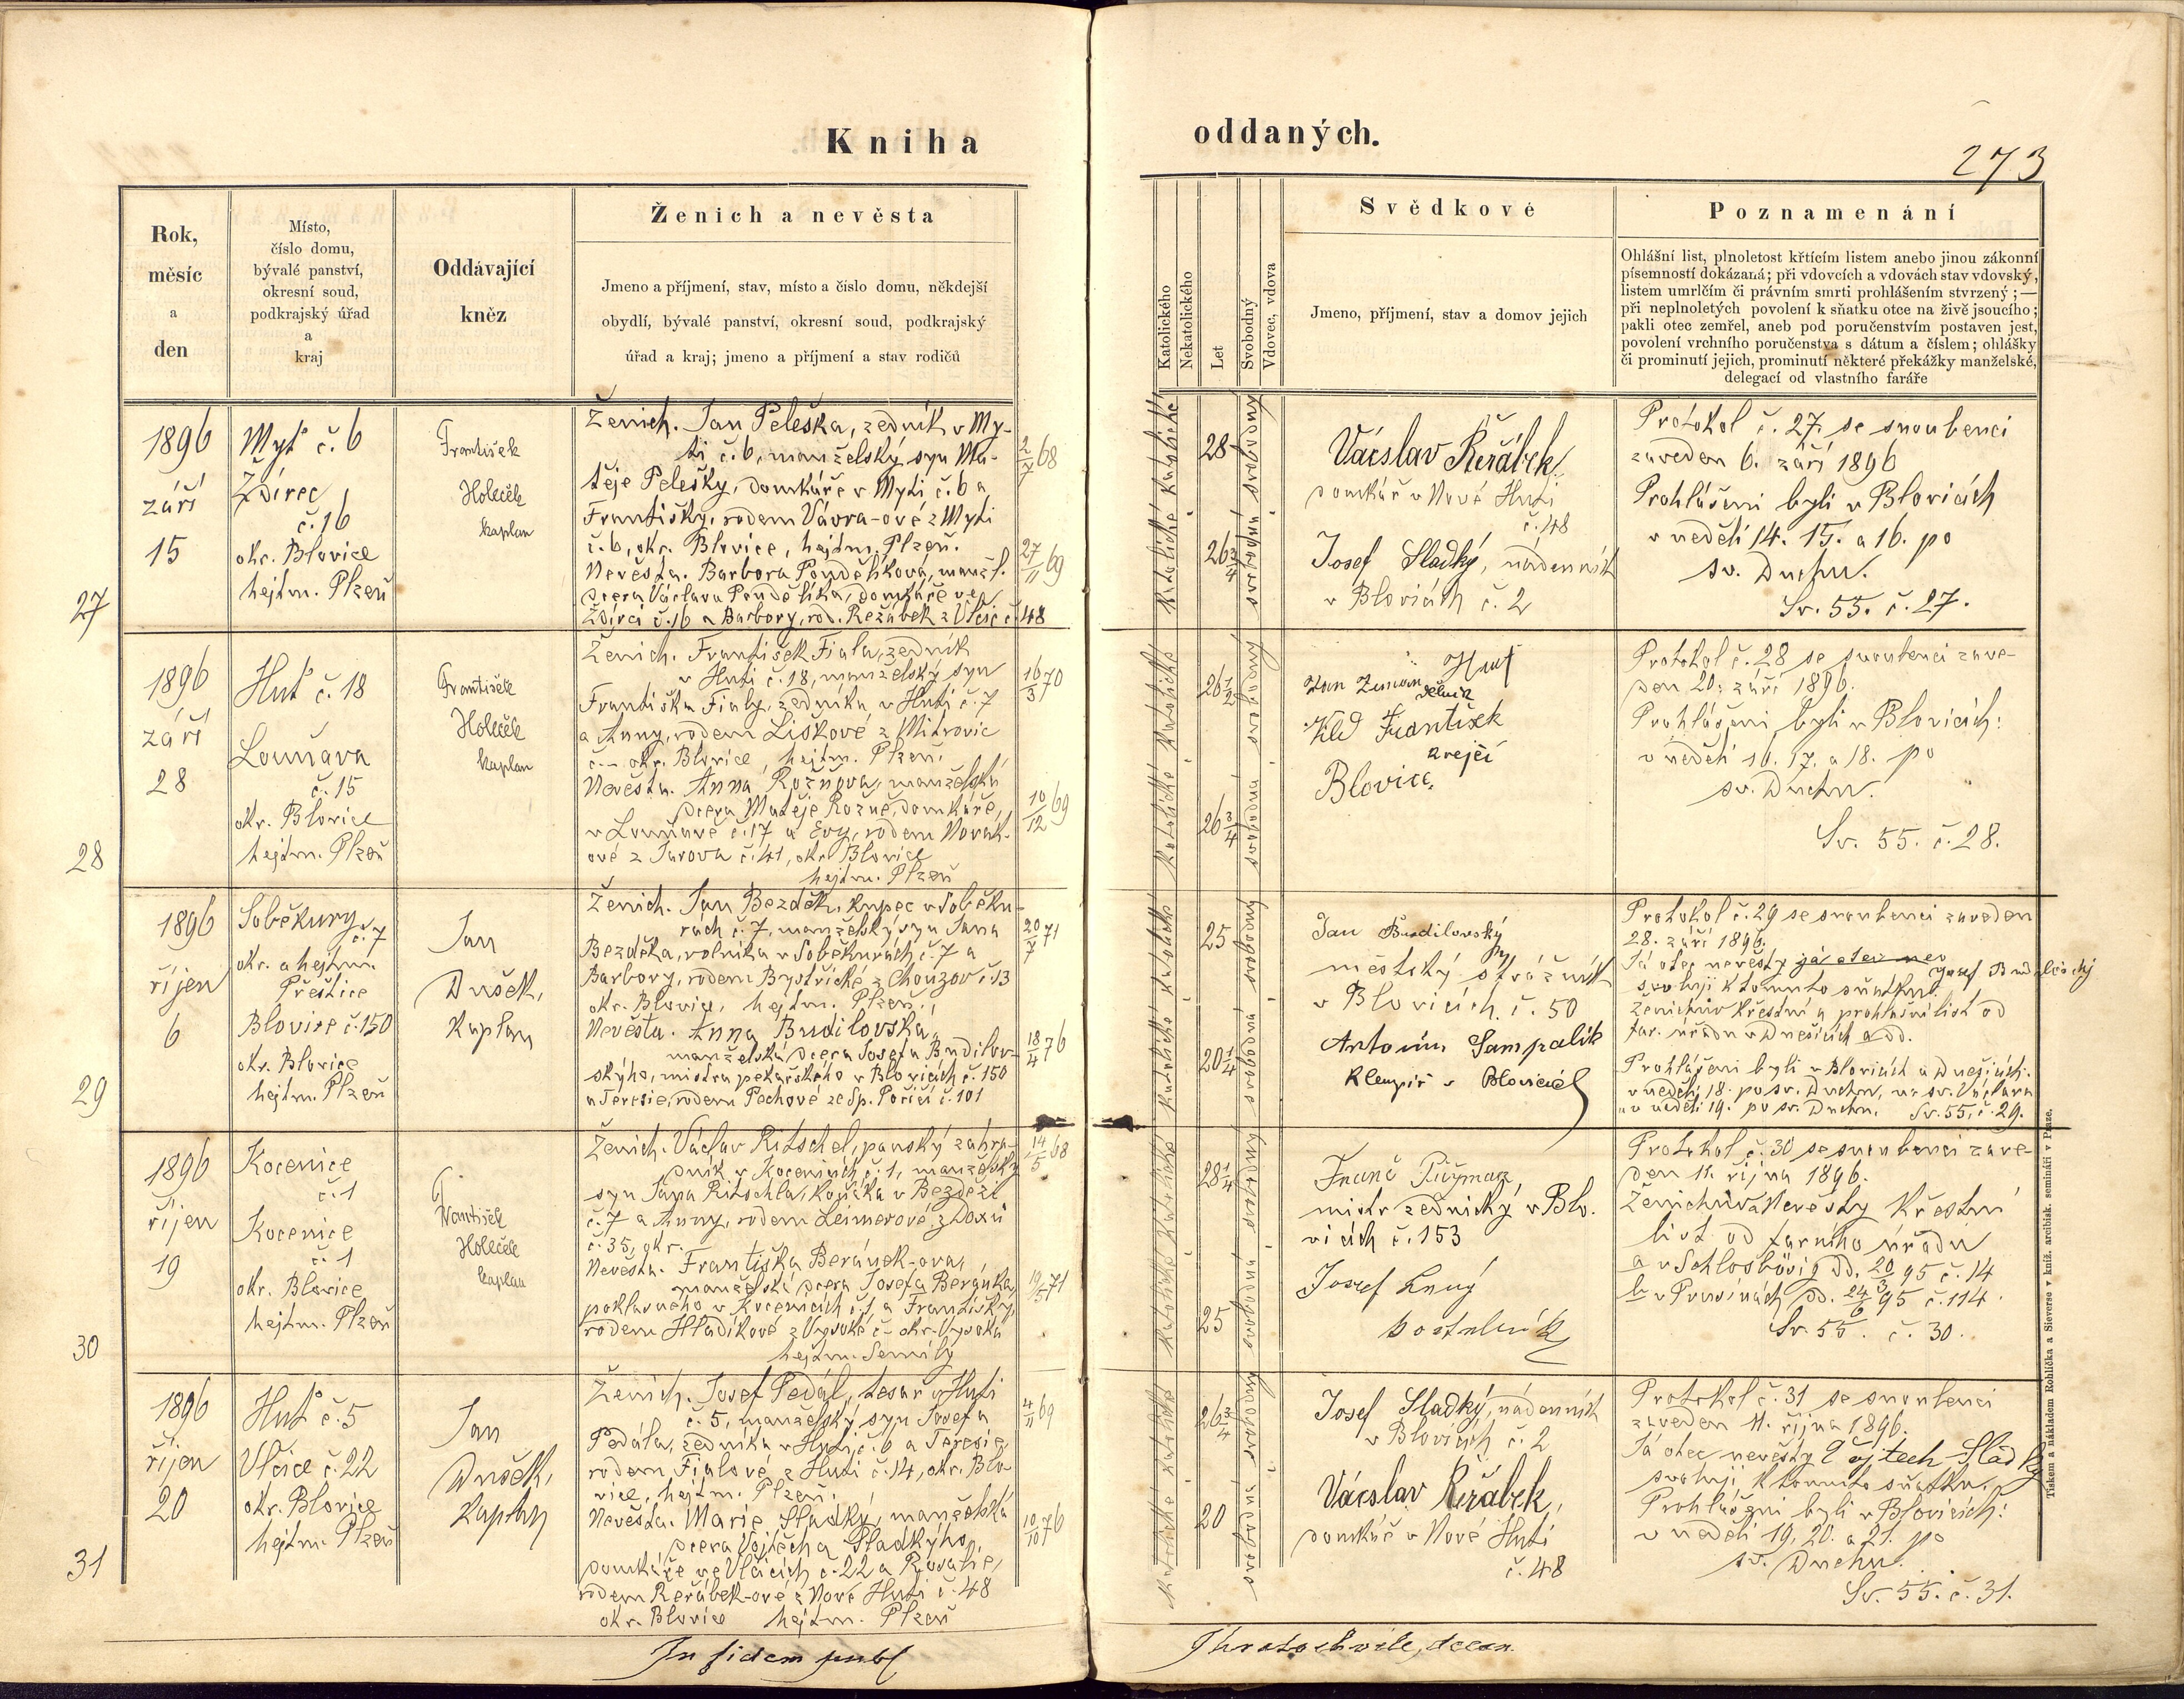 Kniha
oddaných.
273
Rok,
měsíc
a
den
Místo,
číslo domu,
bývalé panství,
okresní soud,
podkrajský úřad
a
kraj
Oddávající
kněz
Ženich a nevěsta
Jmeno a příjmení, stav, místo a číslo domu, někdejší
obydlí, bývalé panství, okresní soud, podkrajský
úřad a kraj; jmeno a příjmení a stav rodičů
Katolického
Nekatolického
Let
Svobodný
Vdovec, vdova
Svědkové
Jmeno, příjmení, stav a domov jejich
Poznamenání
Ohlášní list, plnoletost křtícím listem anebo jinou zákonní
písemností dokázaná; při vdovcích a vdovách stav vdovský,
listem umrlčím či právním smrti prohlášením stvrzený; —
při neplnoletých povolení k sňatku otce na živě jsoucího;
pakli otec zemřel, aneb pod poručenstvím postaven jest,
povolení vrchního poručenstva s dátum a číslem; ohlášky
či prominutí jejich, prominutí některé překážky manželské,
delegací od vlastního faráře
27
1896
září
15
Myť č. 6
Ždírec
č. 16
okr. Blovice
hejtm. Plzeň
František
Holeček
kaplan
Ženich. Jan Peleška, zedník v My-
ti č. 6, manželský syn Ma-
těje Pelešky, domkáře v Myti č. 6 a
Františky, rodem Vávra-ové z Myti
č. 6, okr. Blovice, hejtm. Plzeň.
Nevěsta. Barbora Pondělíková, manž.
dcera Václava Pondělíka, domkáře ve
Ždírci č. 16 a Barbory, rod. Řežábek z Vlčic č. 48
2/7 68
27/11 69
katolické katolické
28
26 3/4
svobodný
svobodná
Václav Řeřábek,
domkář v Nové Huti
č. 48
Josef Sladký, nádenník
v Blovicích č. 2
Protokol č. 27. se snoubenci
zaveden 6. září 1896
Prohlášeni byli v Blovicích
v neděli 14. 15. a 16. po
sv. Duchu.
Sv. 55. č. 27.
28
1896
září
28
Huť č. 18
Louňava
č. 15
okr. Blovice
hejtm. Plzeň
František
Holeček
kaplan
Ženich. František Fiala, zedník
v Huti č. 18, manželský syn
Františka Fialy, zedníka v Huti č. 7
a Anny, rodem Liškové z Mitrovic
č. — okr. Blovice, hejtm. Plzeň.
Nevěsta. Anna Rožňova, manželská
dcera Matěje Rozně, domkáře,
v Louňavě č. 17 a Evy, rodem Novák-
ové z Jarova č. 41, okr. Blovice
hejtm. Plzeň
16/3 70
10/12 69
katolické katolické
26 1/2
26 3/4
svobodný
svobodná
Huť
Jan Zeman dělník
František
krejčí
Blovice.
Protokol č. 28 se snoubenci zave-
den 20. září 1896.
Prohlášeni byli v Blovicích:
v neděli 16. 17. a 18. po
sv. Duchu.
Sv. 55. č. 28.
29
1896
říjen
6
Soběkury
č. 7
okr. a hejtm.
Přeštice
Blovice č. 150
okr. Blovice
hejtm. Plzeň
Jan
Dušek,
kaplan
Ženich. Jan Bezděk, kupec v Soběku-
rách č. 7, manželský syn Jana
Bezděka, rolníka v Soběkurách č. 7 a
Barbory, rodem Bystřické z Chouzov č. 13
okr. Blovice, hejtm. Plzeň.
Nevěsta. Anna Budilovská,
manželská dcera Josefa Budilov-
ského, mistra pekařského v Blovicích č. 150
a Teresie, rodem Pechové ze Sp. Poříčí č. 101
20/7 71
18/4 76
katolické katolické
25
20 1/4
svobodný
svobodná
Jan Budilovský
městský strážník
v Blovicích č. 50
Antonín Sampalík
Klempíř v Blovicích
Protokol č. 29 se snoubenci zaveden
28. září 1896.
Já otec nevěsty já otec nev Josef Budilovský
svoluji k tomuto sňatku.
Ženichův křestní a prohlašní list od
far. úřadu v Dnešicích a dd.
Prohlášeni byli v Blovicích a Dnešicích.
v neděli 18. po sv. Duchu, na sv. Václava
a v neděli 19. po sv. Duchu. Sv. 55, č. 29.
30
1896
říjen
19
Kocenice
č. 1
Kocenice
č. 1
okr. Blovice
hejtm. Plzeň
František
Holeček
kaplan
Ženich. Václav Ritschel, panský zahra-
dník v Kocenicích č. 1, manželský
syn Jana Ritschla, kočáka v Bezdězi
č. 7 a Anny, rodem Leimerové z Doxů
č. 35, okr.
Nevěsta. Františka Beránek-ova,
manželská dcera Josefa Beránka,
poklasného v Kocenicích č. 1 a Františky
rodem Hladíkové z Vysoké č — okr. Vysoká
hejtm. Semily
14/5 68
19/5 71
katolické katolické
28 1/4
25
svobodný
svobodná
Franc
mistr zednický v Blo-
vicích č. 153
Josef
Protokol č. 30 se snoubenci zave-
den 11. října 1896.
Ženichův a Nevěsty křestní
list od farního úřadu
a v Schlosbösig dd. 20/3 95 č. 14
b v Prusinách dd. 24/6 95 č. 114.
Sv. 55. č. 30.
31
1896
říjen
20
Huť č. 5
Vlčice č. 22
okr. Blovice
hejtm. Plzeň
Jan
Dušek,
kaplan
Ženich. Josef Pedál, tesař v Huti
č. 5, manželský syn Josefa
Pedála, zedníka v Huti, č. 6 a Teresie,
rodem Fialové z Huti č. 14, okr. Blo-
vice, hejtm. Plzeň.
Nevěsta. Marie Sladký, manželská
dcera Vojtěcha Sladkýho,
domkáře ve Vlčicích č. 22 a Rosalie,
rodem Řeřábek-ové z Nové Huti č. 48
okr. Blovice hejtm. Plzeň
4/11 69
10/10 76
katolické katolické
26 3/4
20
svobodný
svobodná
Josef Sladký, nádenník
v Blovicích č. 2
Václav Řeřábek,
domkář v Nové Huti
č. 48
Protokol č. 31 se snoubenci
zaveden 11. října 1896.
Já otec nevěsty Vojtech Sladký
svoluji k tomuto sňatku.
Prohlášeni byli v Blovicích:
v neděli 19, 20. a 21. po
sv. Duchu.
Sv. 55. č. 31.
In fidem publ
J hratochvile, decan.
Tiskem a nákladem Rohlíčka a Sieverse v kníž. arcibisk. semináři v Praze.